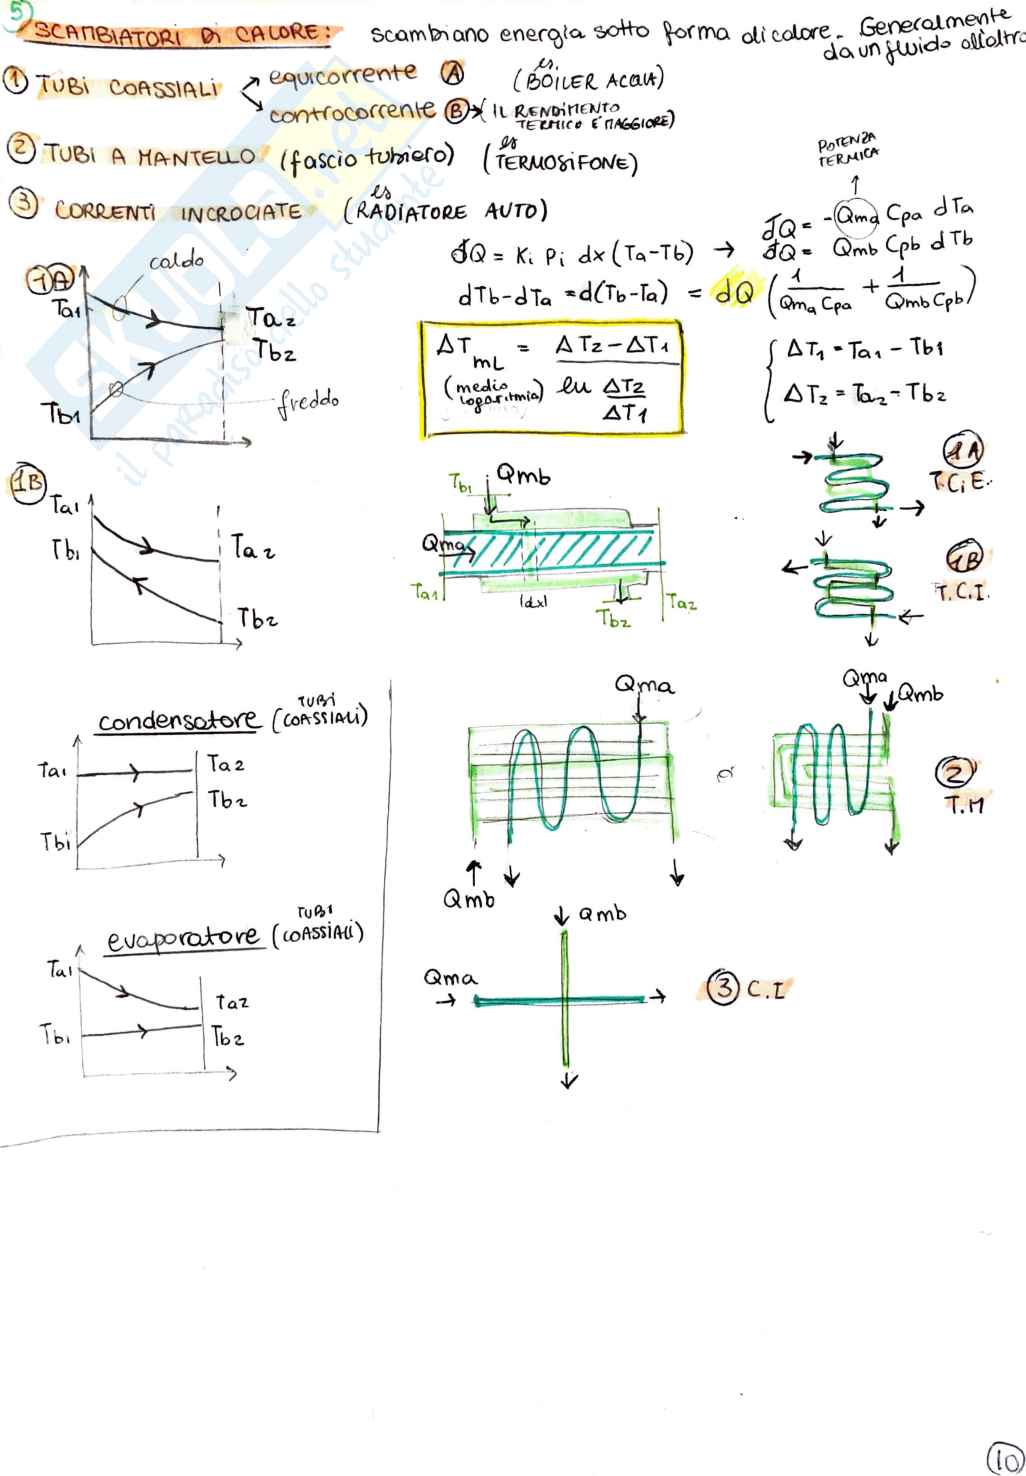 5)
SCAMBIATORI DI CALORE: scambiano energia sotto forma di calore. Generalmente
da un fluido all'altro
① TUBI COASSIALI equicorrente Ⓐ (es. BOILER ACQUA)
controcorrente Ⓑ → (IL RENDIMENTO
TERMICO E' MAGGIORE)
② TUBI A MANTELLO (fascio tubiero) (es TERMOSIFONE)
③ CORRENTI INCROCIATE (es RADIATORE AUTO)
POTENZA
TERMICA
đQ = Ki Pi dx (Ta-Tb) → đQ = -Qma Cpa dTa
đQ = Qmb Cpb dTb
dTb-dTa = d(Tb-Ta) = dQ (1/Qma Cpa + 1/Qmb Cpb)
ΔT mL = ΔT2 - ΔT1 / ln ΔT2/ΔT1
(medio
logaritmia)
ΔT1 = Ta1 - Tb1
ΔT2 = Ta2 - Tb2
1A
caldo
Ta1
Ta2
Tb2
Tb1
freddo
1B
Ta1
Tb1
Ta2
Tb2
Tb1
Qmb
Qma
Ta1
|dx|
Tb2
Ta2
1A
T.C.E.
1B
T.C.I.
condensatore (TUBI COASSIALI)
Ta1
Ta2
Tb2
Tb1
evaporatore (TUBI COASSIALI)
Ta1
Ta2
Tb1
Tb2
Qma
Qmb
o
Qma
Qmb
②
T.M
Qmb
Qma
③ C.I
SKUOLA.net
il paradiso dello studente
10